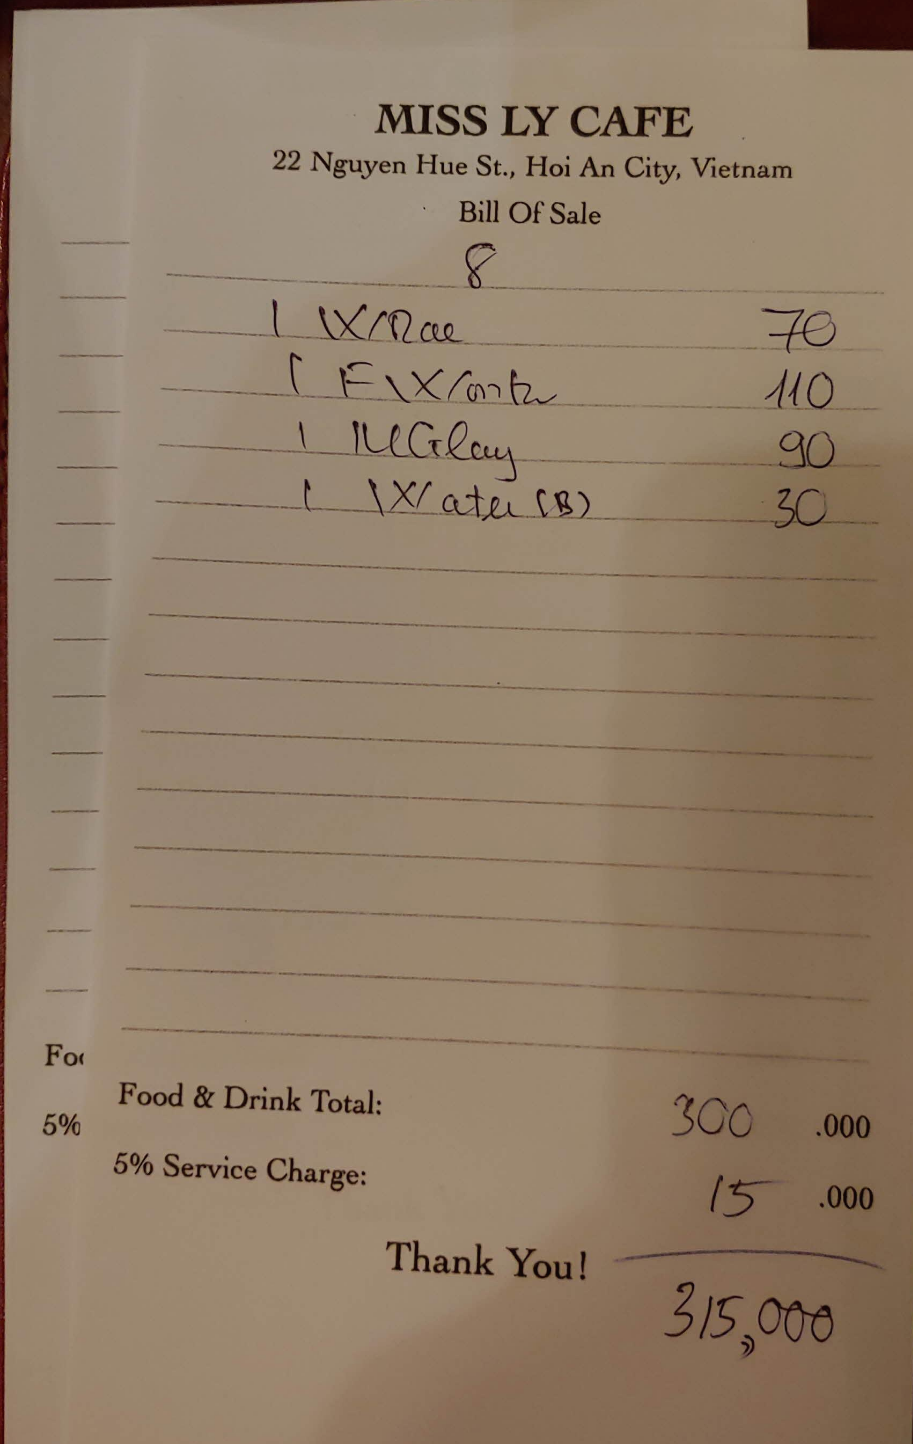 MISS LY CAFE
22 Nguyen Hue St., Hoi An City, Vietnam
Bill Of Sale
8
1 70
1 110
1 90
1 Water (B) 30
Food & Drink Total: 300 .000
5% Service Charge: 15 .000
Thank You!
315,000
5%